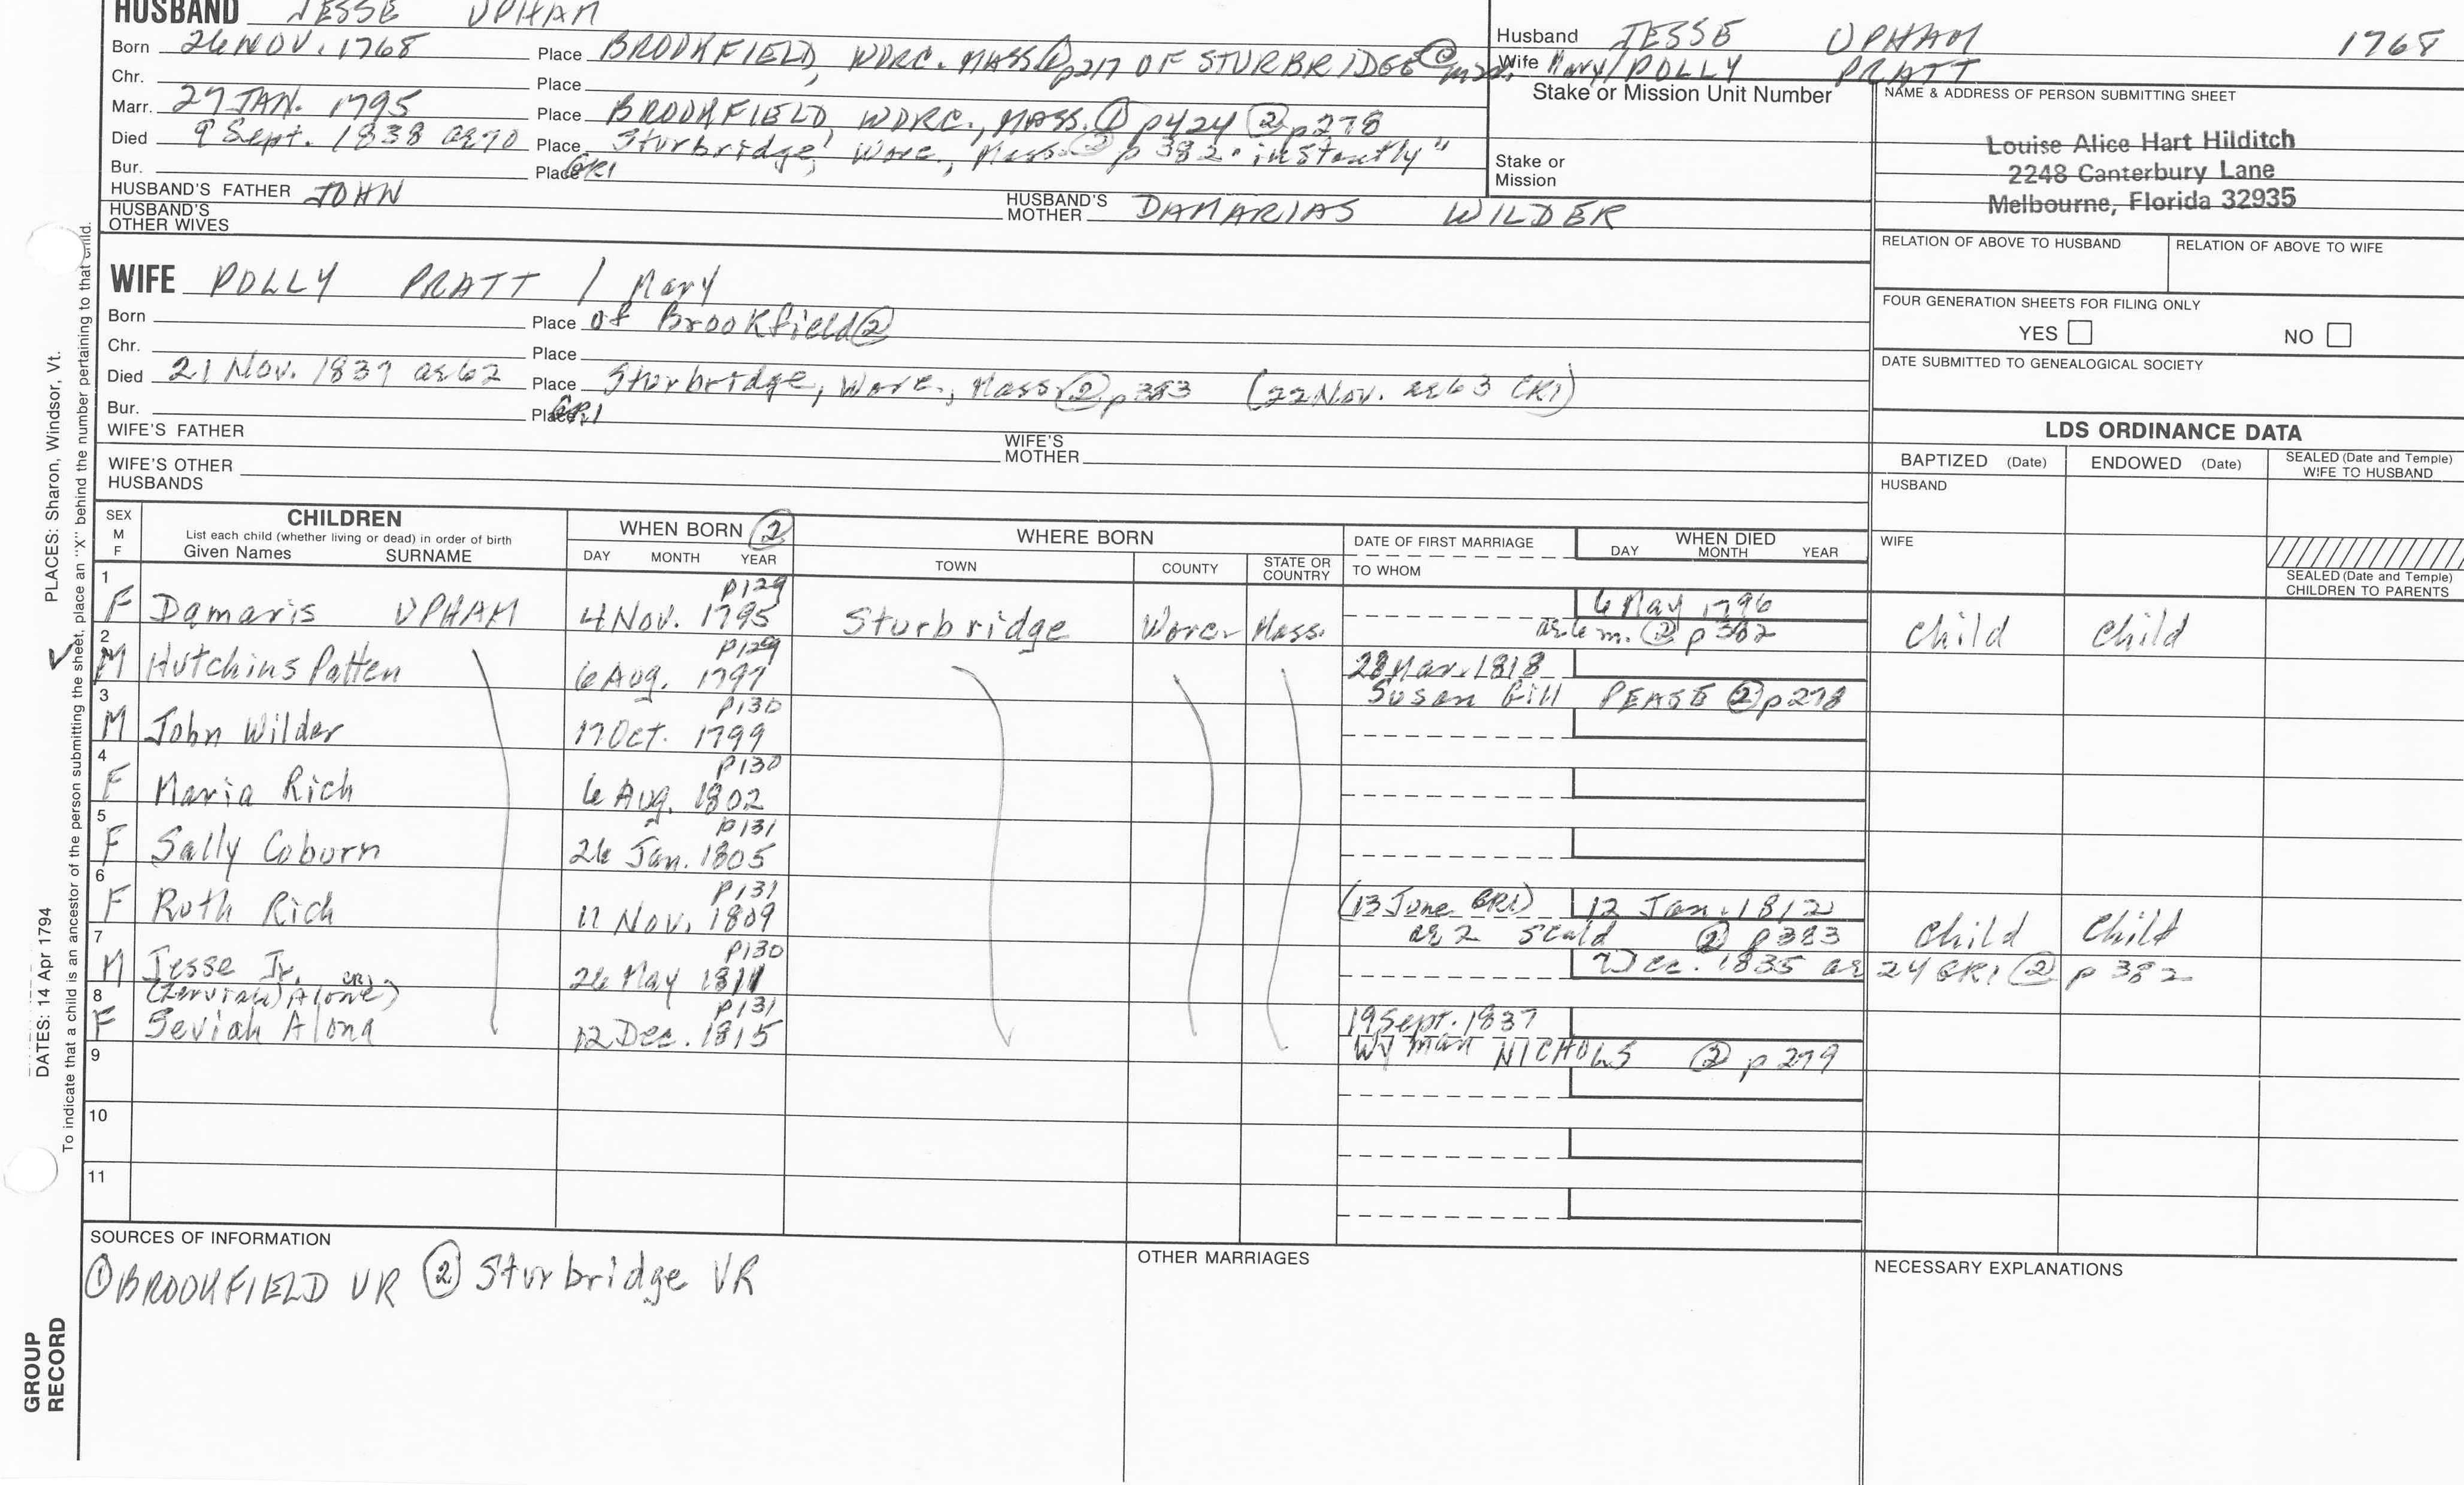 HUSBAND JESSE UPHAM
Born 26 NOV. 1768 Place BROOKFIELD, WORC. MASS ① p217 OF STURBRIDGE
Chr. Place
Marr. 27 JAN. 1795 Place BROOKFIELD, WORC., MASS. ① p424 ② p278
Died 9 Sept. 1838 ae 70 Place Sturbridge, Worc., Mass. ② p 382 "instantly"
Bur. Place GR1
HUSBAND'S FATHER JOHN HUSBAND'S MOTHER DAMARIAS WILDER
HUSBAND'S OTHER WIVES
Husband JESSE UPHAM 1768
Wife Mary/POLLY PRATT
Stake or Mission Unit Number
Stake or Mission
NAME & ADDRESS OF PERSON SUBMITTING SHEET
Louise Alice Hart Hilditch
2248 Canterbury Lane
Melbourne, Florida 32935
RELATION OF ABOVE TO HUSBAND RELATION OF ABOVE TO WIFE
FOUR GENERATION SHEETS FOR FILING ONLY
YES NO
DATE SUBMITTED TO GENEALOGICAL SOCIETY
WIFE POLLY PRATT / Mary
Born Place of Brookfield ②
Chr. Place
Died 21 Nov. 1839 ae 62 Place Sturbridge, Worc., Mass. ② p 383 (22 Nov. ae 63 GR1)
Bur. Place GR1
WIFE'S FATHER WIFE'S MOTHER
WIFE'S OTHER HUSBANDS
LDS ORDINANCE DATA
BAPTIZED (Date) ENDOWED (Date) SEALED (Date and Temple) WIFE TO HUSBAND
HUSBAND
WIFE
SEALED (Date and Temple) CHILDREN TO PARENTS
SEX M F
CHILDREN
List each child (whether living or dead) in order of birth
Given Names SURNAME
WHEN BORN ②
DAY MONTH YEAR
WHERE BORN
TOWN COUNTY STATE OR COUNTRY
DATE OF FIRST MARRIAGE
TO WHOM
WHEN DIED
DAY MONTH YEAR
1 F Damaris UPHAM p129 4 Nov. 1795 Sturbridge Worc. Mass. 6 May 1796
ae 6 m. ② p 382 Child Child
2 M Hutchins Patten p129 6 Aug. 1797 28 Mar. 1818
Susan Gill PEASE ② p278
3 M John Wilder p130 17 Oct. 1799
4 F Maria Rich p130 6 Aug. 1802
5 F Sally Coburn p131 26 Jan. 1805
6 F Ruth Rich p131 11 Nov. 1809 (13 June GR1) 12 Jan. 1812
ae 2 scald ② p383 Child Child
7 M Jesse Jr. p130 26 May 1811 Dec. 1835 ae 24 GR1 ② p 382
8 F Seviah Alona p131 12 Dec. 1815 19 Sept. 1837
Wyman NICHOLS ② p 279
9
10
11
SOURCES OF INFORMATION
① BROOKFIELD VR ② Sturbridge VR
OTHER MARRIAGES
NECESSARY EXPLANATIONS
PLACES: Sharon, Windsor, Vt.
DATES: 14 Apr 1794
To indicate that a child is an ancestor of the person submitting the sheet, place an "X" behind the number pertaining to that child.
GROUP RECORD